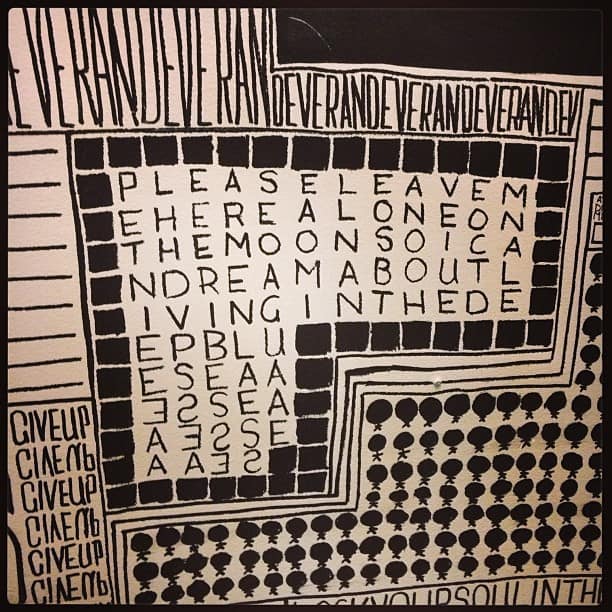 EVERANDEVERAN
DEVERANDEVERANDEVERANDEV
PLEASELEAVEM
EHEREALONEON
THEMOONSOICA
NDREAMABOUTL
IVINGINTHEDE
EPBLU
ESEAA
ƎSSEA
AƎSSE
AAƎS
GIVEUP
GIVEUP
GIVEUP
GIVEUP
GIVEUP
GIVEUP
OCKYOURSOULINTH